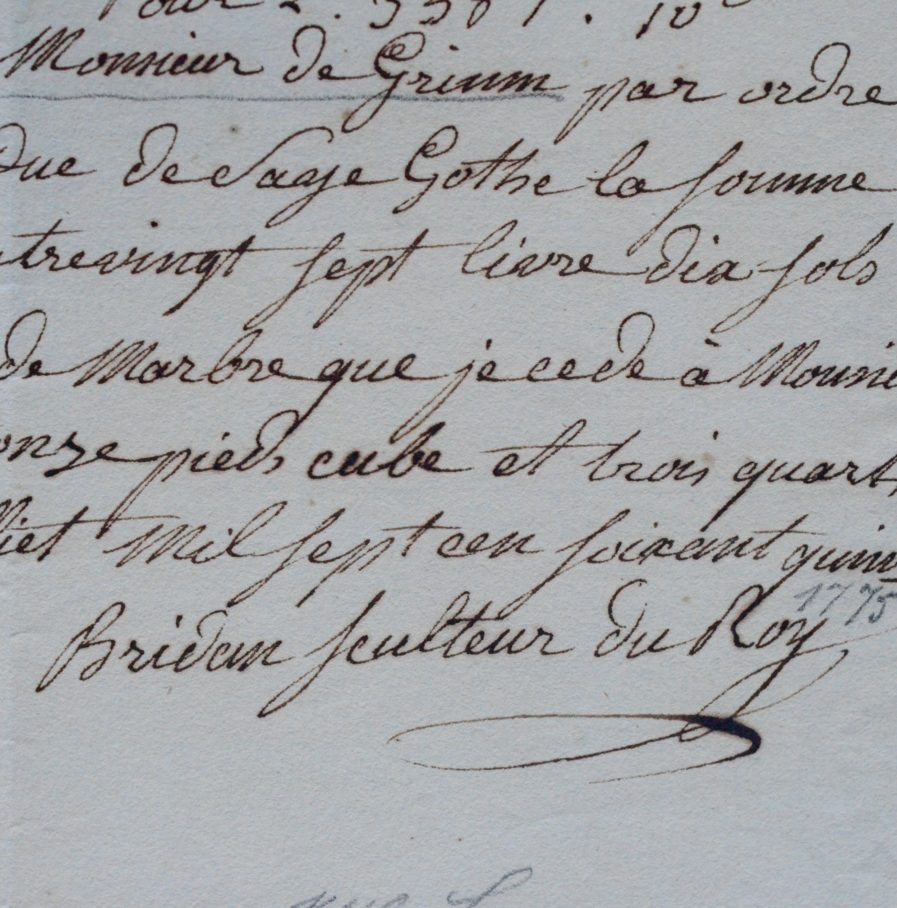 Pour
Monsieur de Grimm par ordre
Duc de Saxe Gothe la somme
trevingt sept livre dix sols
de Marbre que je cede à Monsie
onze pieds cube et trois quart
liet Mil sept cen soixant quin
1775
Bridan sculteur du Roy